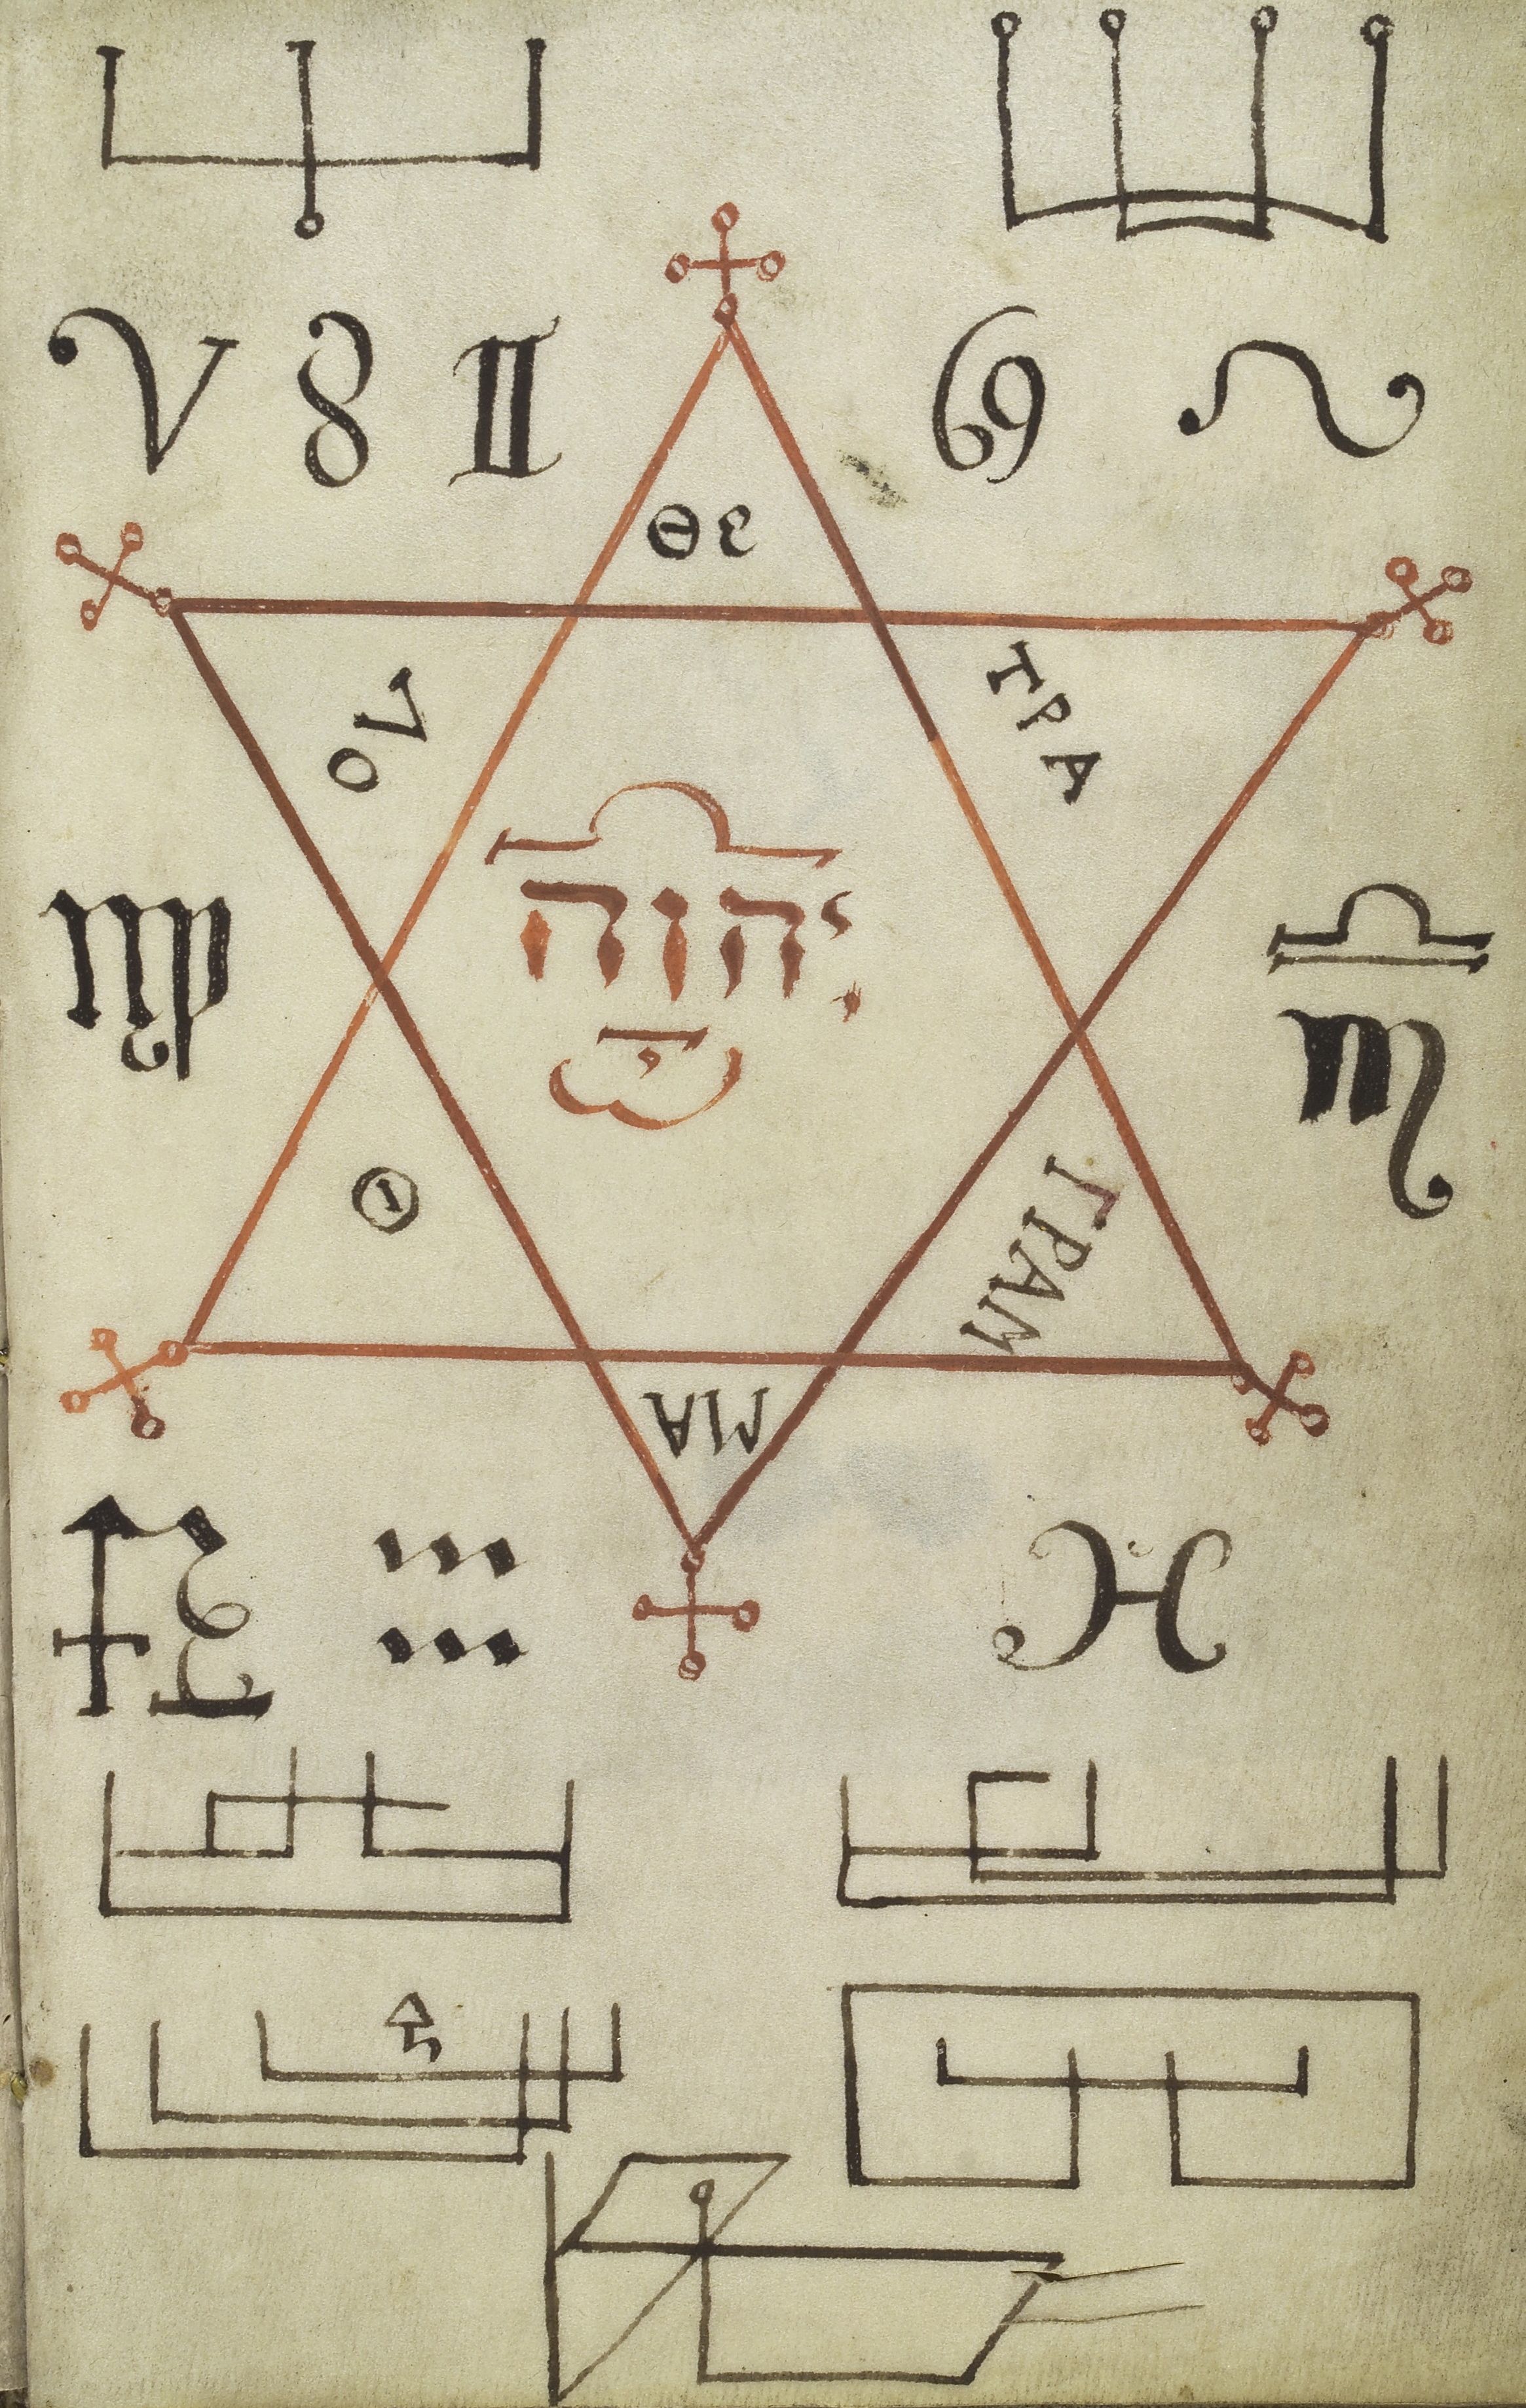 Θε
ΛΟ
ΤΡΑ
יהוה
Θ
ΓΡΑΜ
ΜΑ